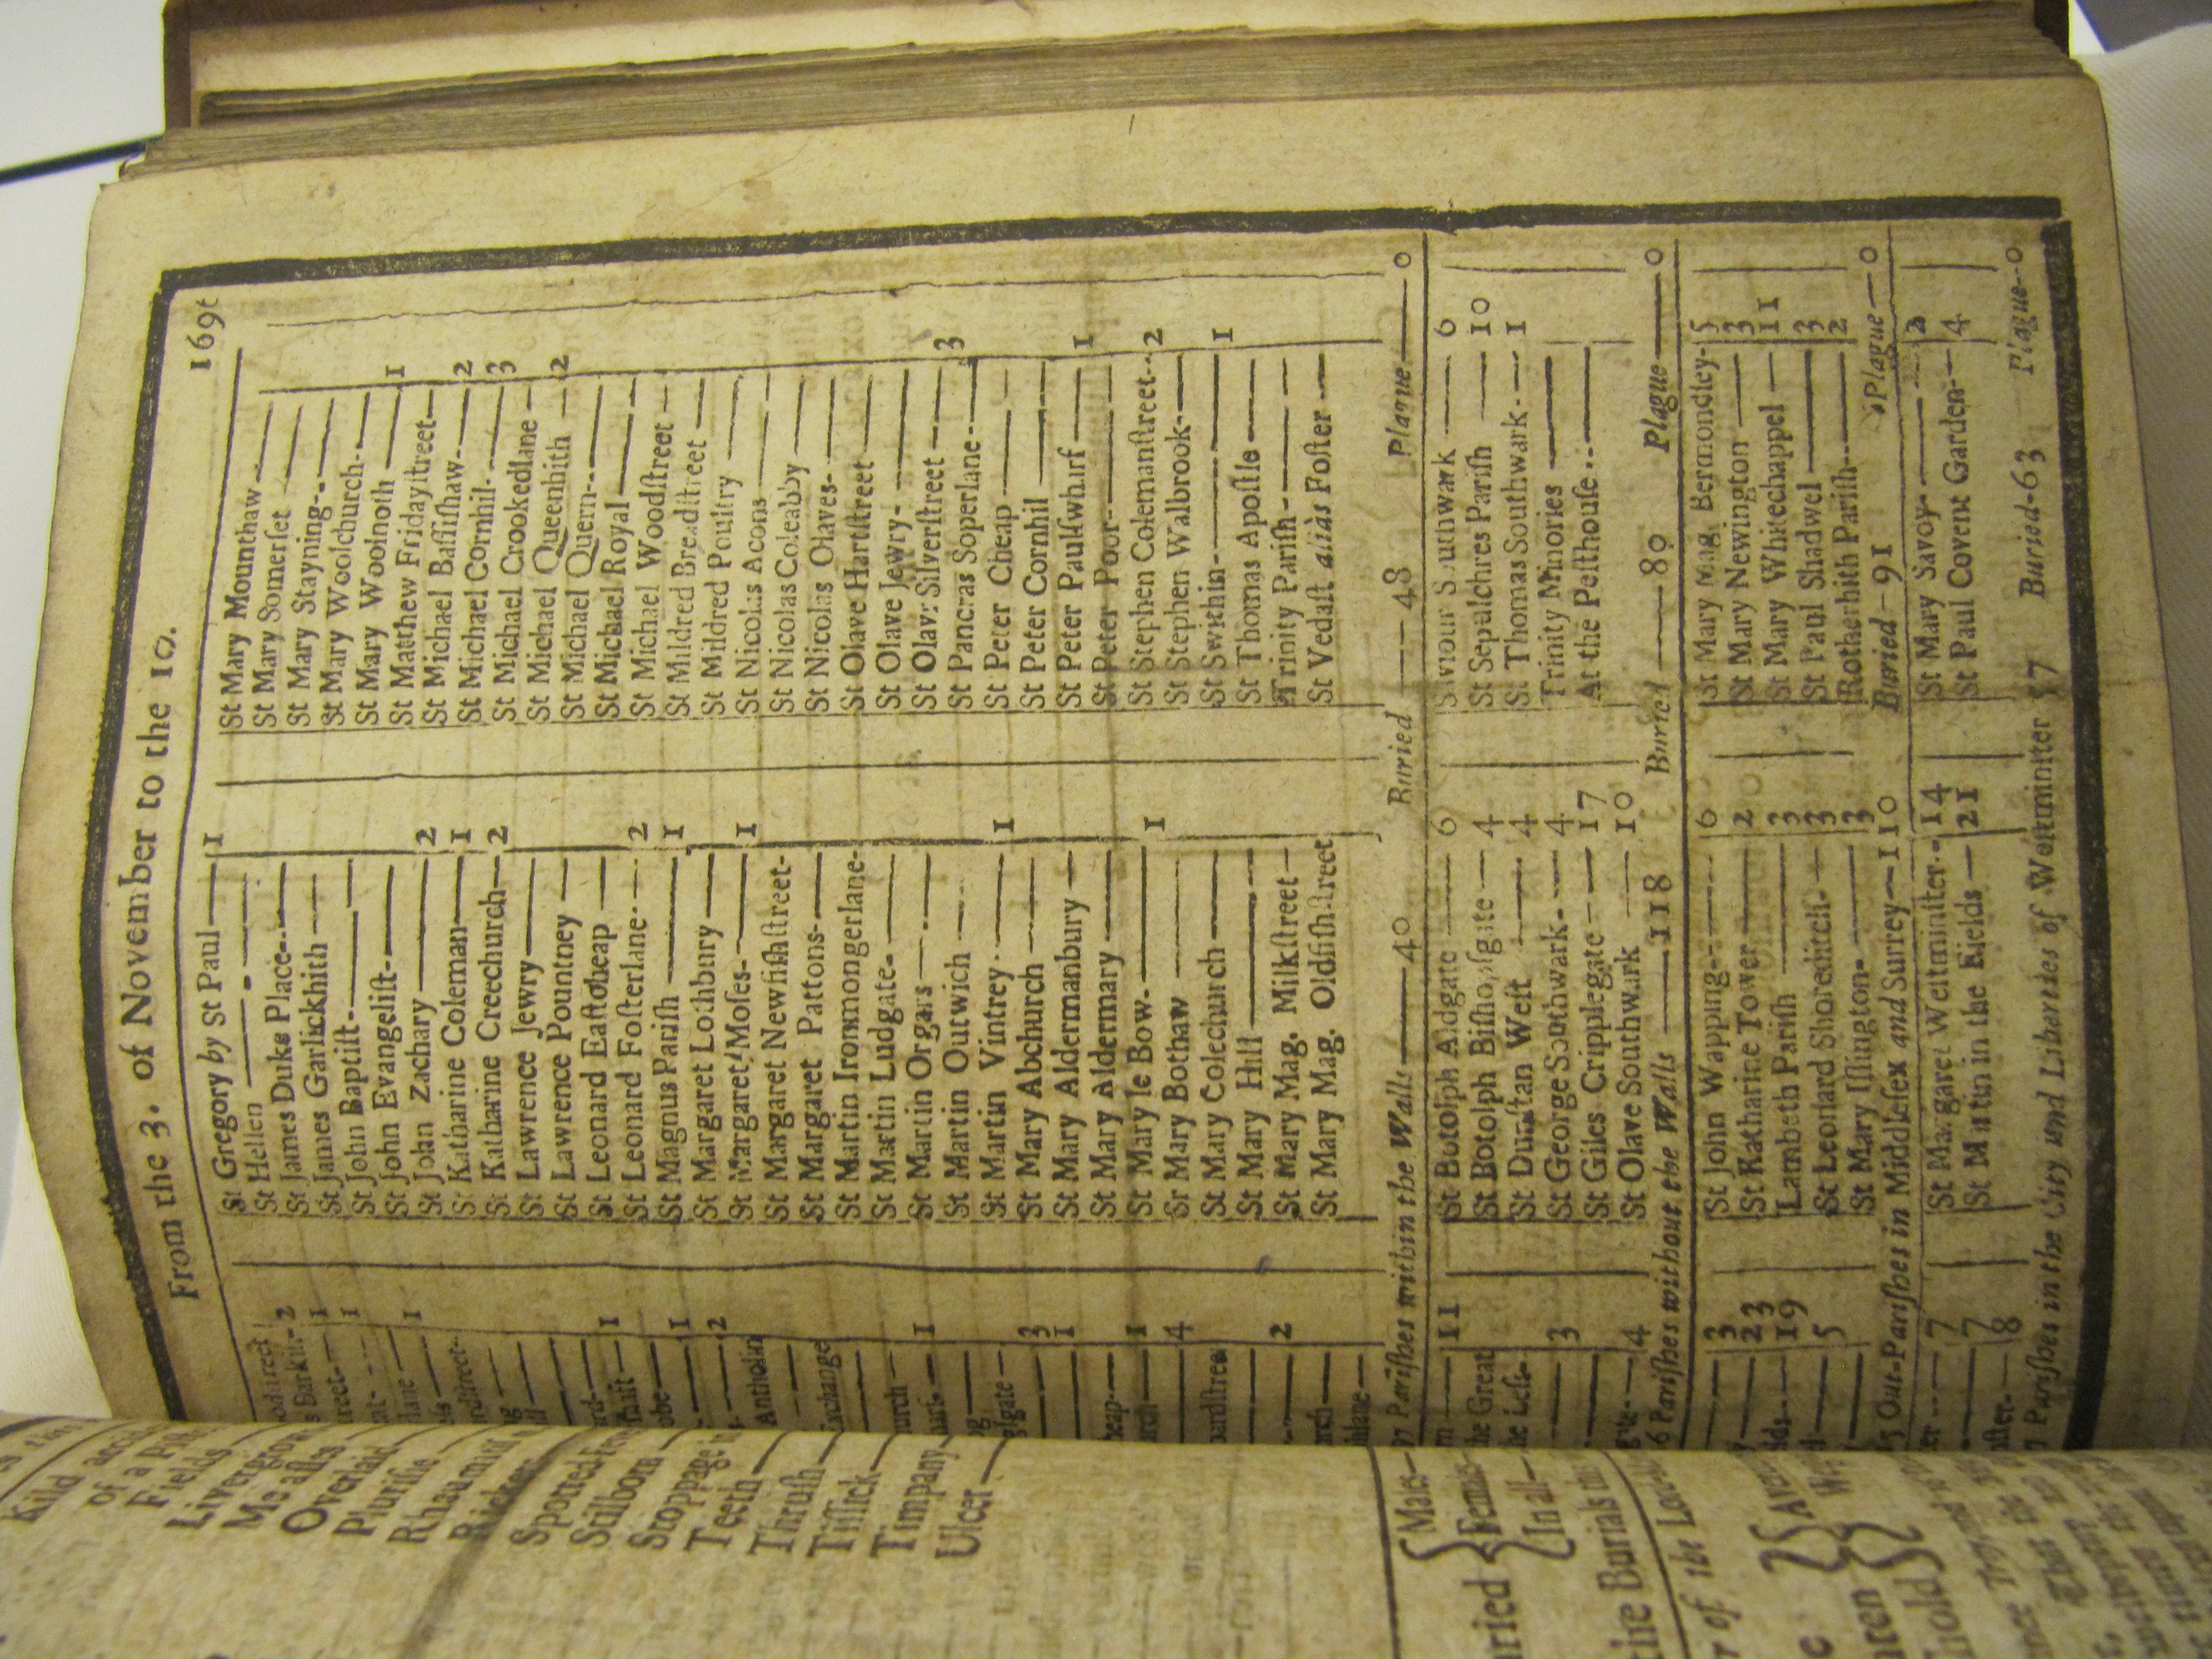 From the 3. of November to the 10. 1691
odſtreet
s Barkin- 2
reet- 1
eat- 1
lane
ls 1
rdſtreet-
ng
ll
ard-
fait 1
obe
1
s- 2
Antholin
Exchange
urch
mari- 1
ng
lgate 3
1
heap-
urch 1
4
oardſtree
2
rch
hlane
St Gregory by St Paul 1
St Hellen
St James Duke Place
St James Garlickhith
St John Baptiſt
St John Evangeliſt
St John Zachary 2
St Katharine Coleman 1
St Katharine Creechurch 2
St Lawrence Jewry
St Lawrence Pountney
St Leonard Eaſtcheap
St Leonard Foſterlane 2
St Magnus Pariſh 1
St Margaret Lothbury
St Margaret Moſes 1
St Margaret Newfiſhſtreet
St Margaret Pattons
St Martin Ironmongerlane
St Martin Ludgate
St Martin Orgars
St Martin Outwich
St Martin Vintrey 1
St Mary Abchurch
St Mary Aldermanbury
St Mary Aldermary
St Mary le Bow 1
St Mary Bothaw
St Mary Colechurch
St Mary Hill
St Mary Mag. Milkſtreet
St Mary Mag. Oldfiſhſtreet
St Mary Mounthaw
St Mary Somerſet
St Mary Stayning
St Mary Woolchurch
St Mary Woolnoth
St Matthew Fridayſtreet 1
St Michael Baſſiſhaw
St Michael Cornhil 2
St Michael Crookedlane 3
St Michael Queenhith
St Michael Quern 2
St Michael Royal
St Michael Woodſtreet
St Mildred Breadſtreet
St Mildred Poultry
St Nicolas Acons
St Nicolas Coleabby
St Nicolas Olaves
St Olave Hartſtreet
St Olave Jewry
St Olave Silverſtreet
St Pancras Soperlane 3
St Peter Cheap
St Peter Cornhil
St Peter Paulſwharf 1
St Peter Poor
St Stephen Colemanſtreet 2
St Stephen Walbrook
St Swithin 1
St Thomas Apoſtle
Trinity Pariſh
St Vedaſt aliàs Foſter
97 Pariſhes within the Walls 40 Buried 48 Plague 0
11
the Great
he Leſs
3
gate 4
St Botolph Aldgate 6
St Botolph Biſhopſgate 4
St Dunſtan Weſt 4
St George Southwark 4
St Giles Cripplegate 17
St Olave Southwark 10
Saviour Southwark 6
St Sepulchres Pariſh 10
St Thomas Southwark 1
Trinity Minories
At the Peſthouſe
16 Pariſhes without the Walls 118 Buried 80 Plague 0
3
23
lds 19
5
St John Wapping 6
St Katharine Tower 2
Lambeth Pariſh 3
St Leonard Shoreditch 3
St Mary Iſlington 3
St Mary Mag. Bermondſey 5
St Mary Newington 3
St Mary Whitechappel 11
St Paul Shadwel 3
Rotherhith Pariſh 2
Out-Pariſhes in Middleſex and Surrey 110 Buried 91 Plague 0
er 7
7
ſter 8
St Margaret Weſtminſter 14
St Martin in the Fields 21
St Mary Savoy 2
St Paul Covent Garden 4
7 Pariſhes in the City and Liberties of Weſtminſter 57 Buried 63 Plague 0
Kild
of a
Fields
Livergrow
Meaſles
Overlaid
Pluriſie
Rickets
Spotted
Stilborn
Stoppage in
Teeth
Thruſh
Tiſſick
Timpany
Ulcer
uried Males
In all
the Burials
r of the Lord